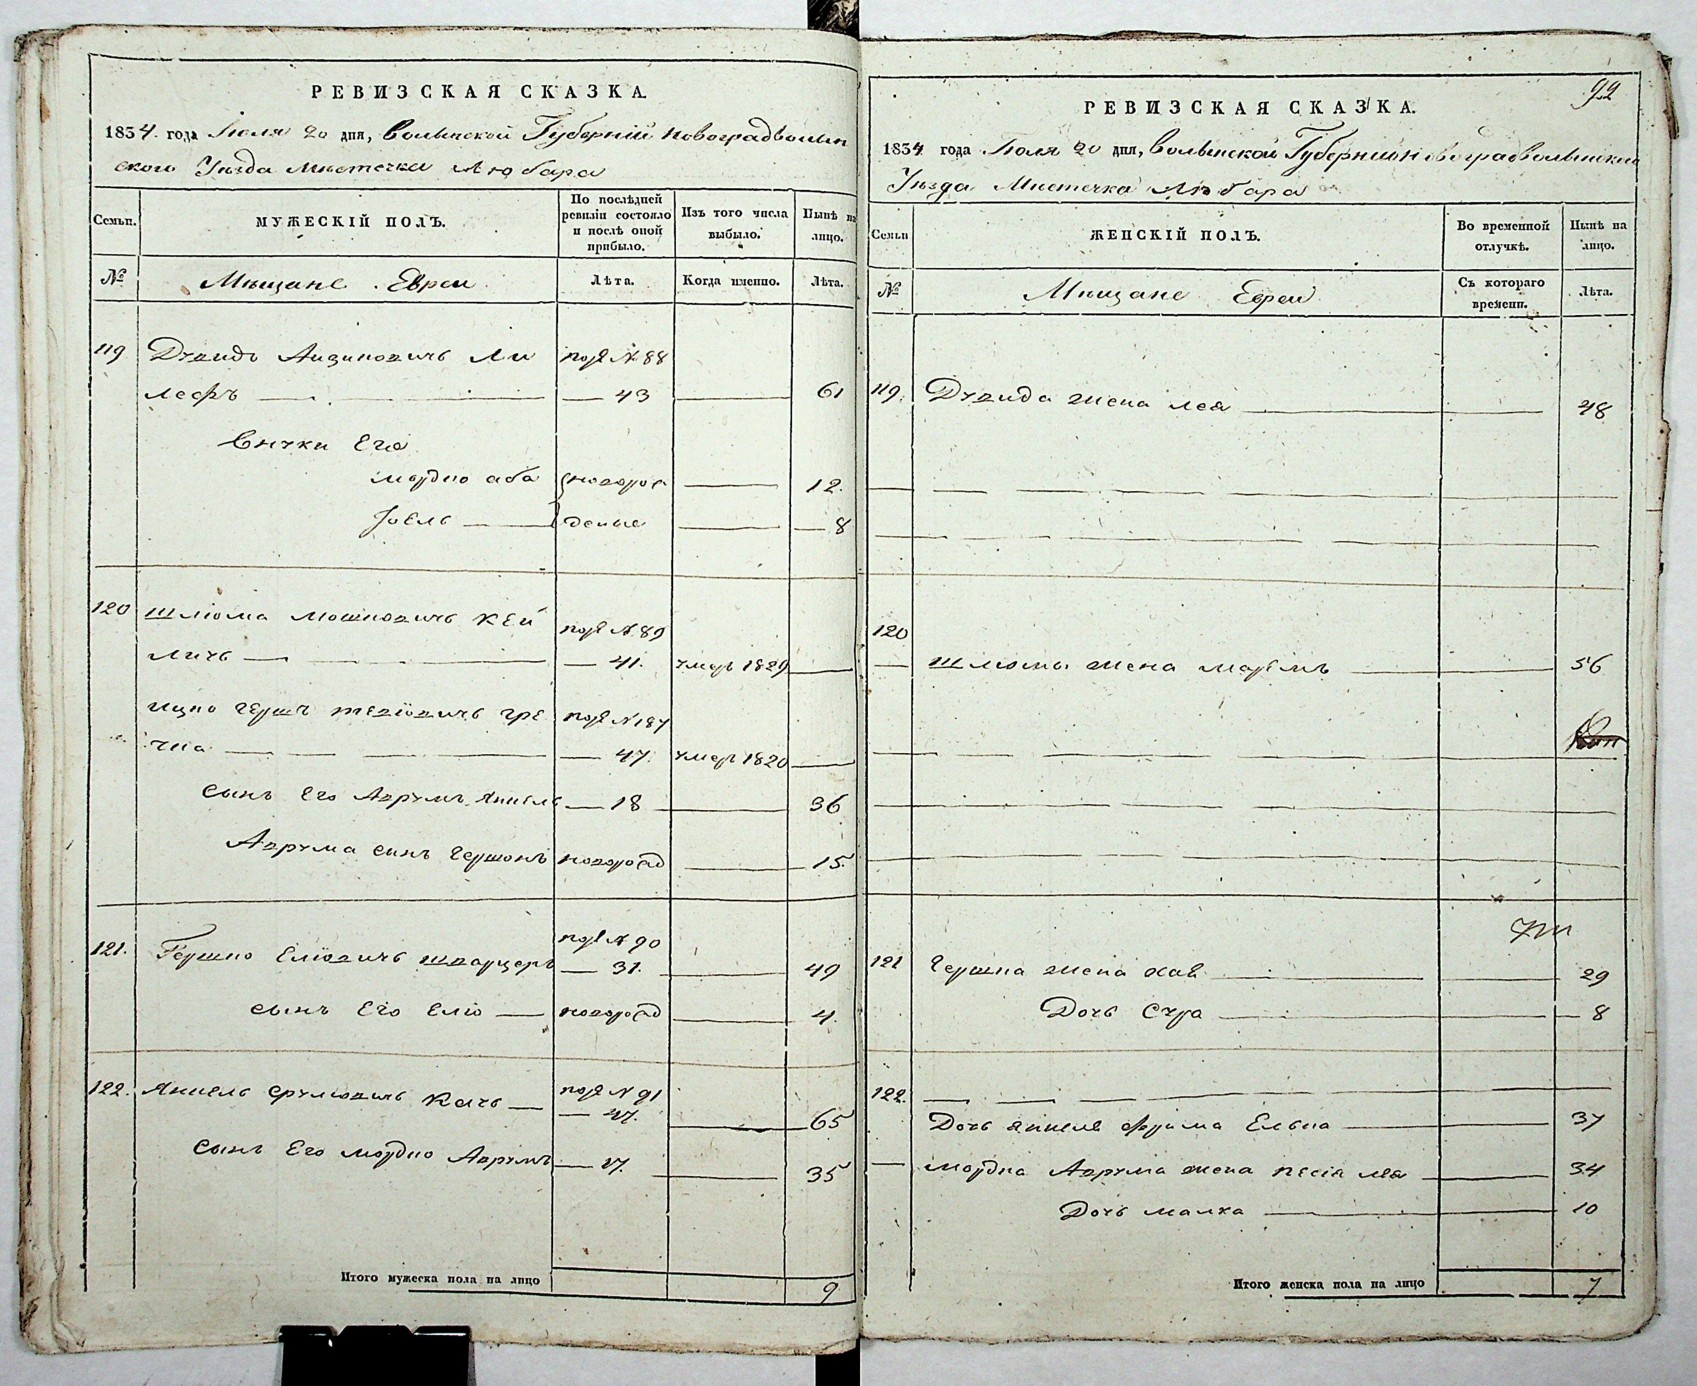 РЕВИЗСКАЯ СКАЗКА.
1834. года Июля 20 дня, Волынской Губерніи Новоградволын
ского Уѣзда Мистечка Любара
Семьи.
МУЖЕСКІЙ ПОЛЪ.
По послѣдней
ревизіи состояло
и послѣ оной
прибыло.
Изъ того числа
выбыло.
Нынѣ на
лицо.
№
Мѣщане Евреи
Лѣта.
Когда именно.
Лѣта.
119 Дувидъ Айзиковичъ Ли под N 88
леръ — 43 — 61
Внуки Его
Мордко аба новорож 12.
Іоель — деные — 8
120 Шліома Мошковичъ Кей под N 89
личъ — 41. умеръ 1829
Ицко Гершъ Тевіовичъ Гре под N 187
чка — 47. умеръ 1820
Сынъ Его Аврумъ Янкель — 18 — 36
Аврума сынъ Гершонъ новорожд — 15.
121. Гершко Еліовичъ Шварцеръ под N 90
— 31. — 49
Сынъ Его Еліо — новорожд — 4.
122. Янкель Срулiовичъ Качъ — под N 91
— 47. — 65
Сынъ Его Мордко Аврумъ — 17. — 35
Итого мужеска пола на лицо 9
92
РЕВИЗСКАЯ СКАЗКА.
1834 года Июля 20 дня, Волынской Губерніи Новоградволынского
Уѣзда Мистечка Любара
Семьи
ЖЕНСКІЙ ПОЛЪ.
Во временной
отлучкѣ.
Нынѣ на
лицо.
№
Мѣщане Евреи
Съ котораго
времени.
Лѣта.
119. Дувида жена Лея — 48
120
— Шліомы жена Марямъ — 56
121 Гершка жена Хая — 29
Дочь Сура — 8
122.
Дочь Янкеля Фрима Елька — 37
— Мордка Аврума жена Песія Лея — 34
Дочь Малка — 10
Итого женска пола на лицо 7